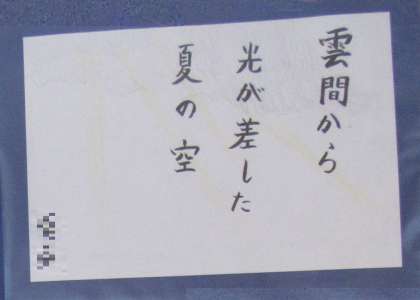 雲間から
光が差した
夏の空